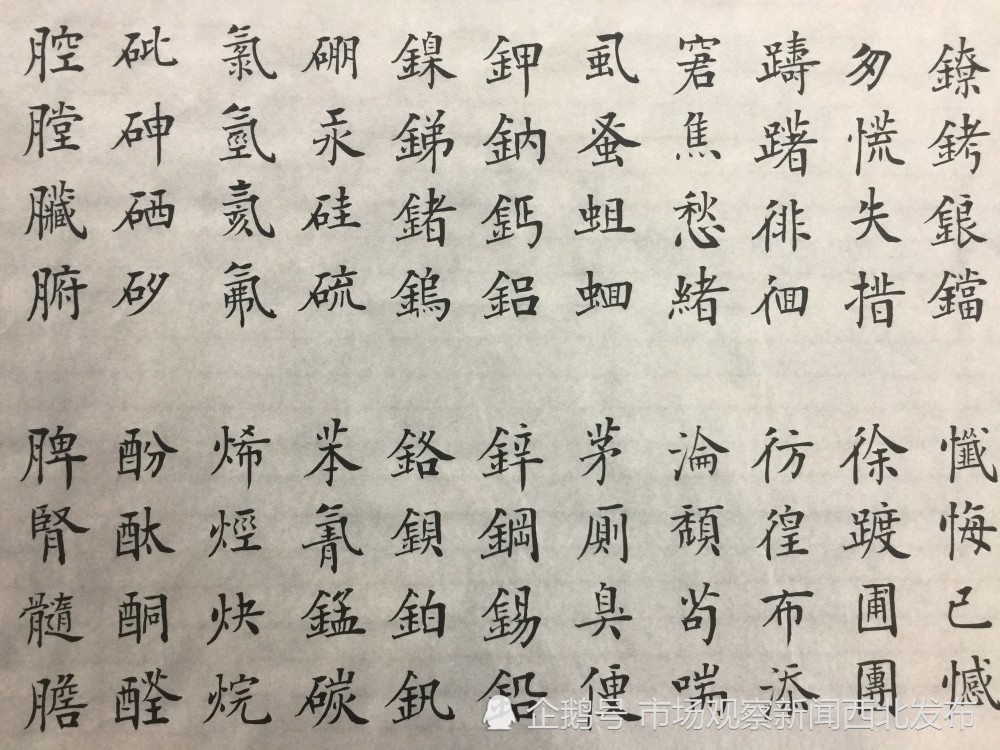 鐐銬鋃鐺 懺悔已憾
匆慌失措 徐踱圃團
躊躇徘徊 彷徨布添
窘焦愁緒 淪頹苟喘
虱蚤蛆蛔 茅厠臭便
鉀鈉鈣鋁 鋅鋼錫鉛
鎳銻鍺鎢 鉻鋇鉑釩
硼汞硅硫 苯氰錳碳
氯氫氦氟 烯烴炔烷
砒砷硒矽 酚酞酮醛
腔膛臟腑 脾腎髓膽
企鹅号 市场观察新闻西北发布